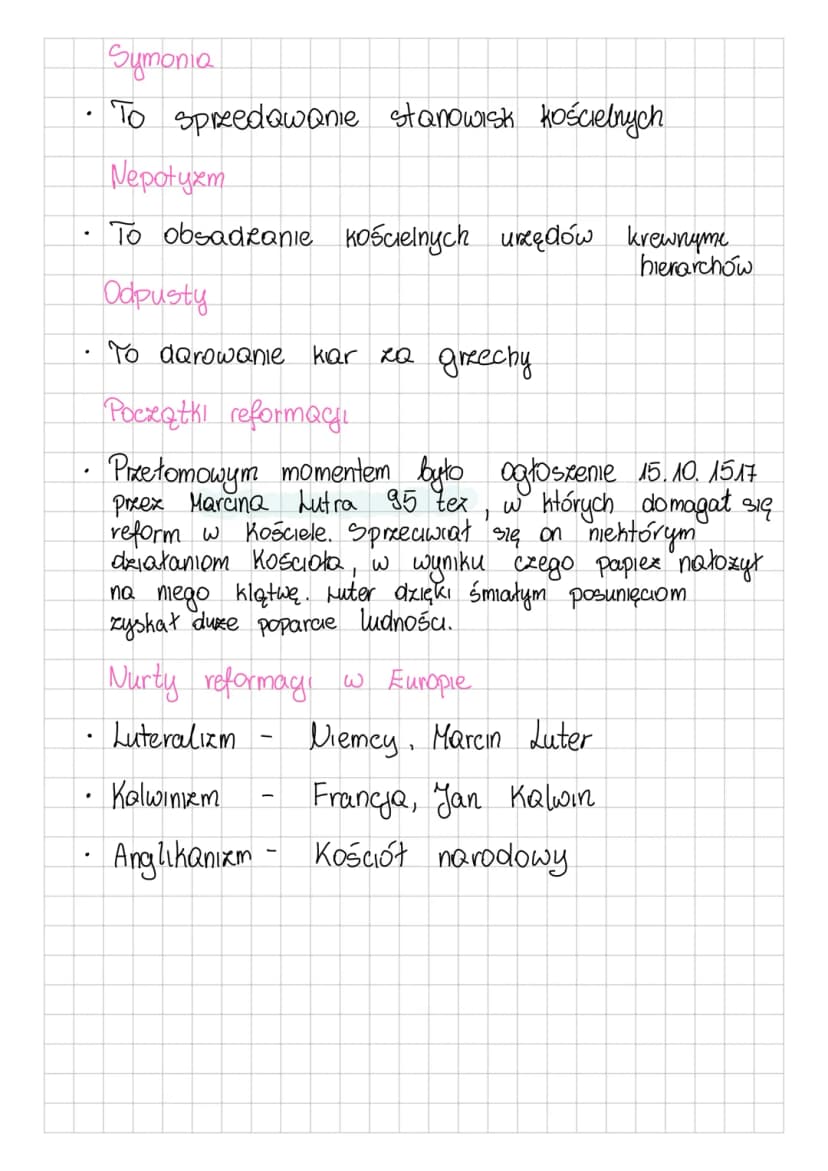 Symonia
• To sprzedawanie stanowisk kościelnych
Nepotyzm
• To obsadzanie kościelnych urzędów krewnymi
hierarchów
Odpusty
• To darowanie kar za grzechy
Początki reformacji
• Przełomowym momentem było ogłoszenie 15.10.1517
przez Marcina Lutra 95 tez, w których domagał się
reform w Kościele. Sprzeciwiał się on niektórym
działaniom Kościoła, w wyniku czego papież nałożył
na niego klątwę. Luter dzięki śmiałym posunięciom
zyskał duże poparcie ludności.
Nurty reformacji w Europie
• Luteralizm - Niemcy, Marcin Luter
• Kalwinizm - Francja, Jan Kalwin
• Anglikanizm - Kościół narodowy